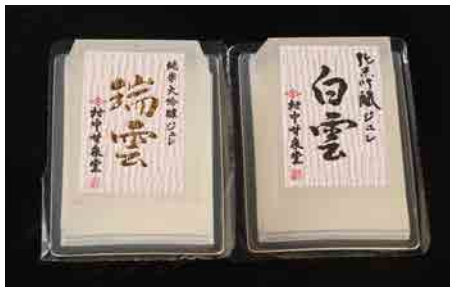 純米大吟醸ジュレ
瑞雲
村中甘泉堂
純米吟醸ジュレ
白雲
村中甘泉堂